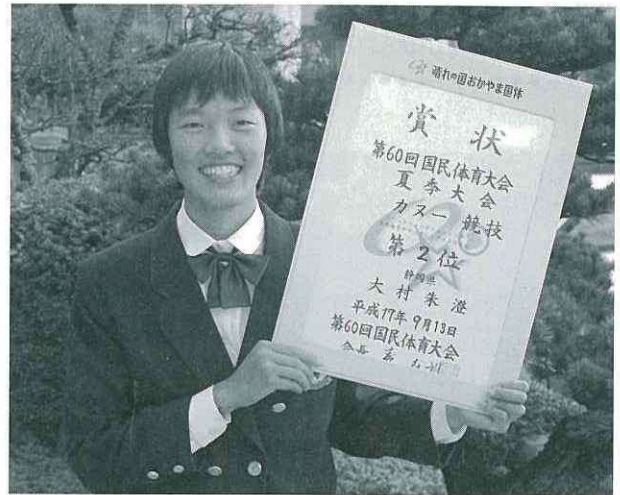 晴れの国おかやま国体
賞状
第60回国民体育大会
夏季大会
カヌー競技
第2位
静岡県
大村朱澄
平成17年9月13日
第60回国民体育大会
会長